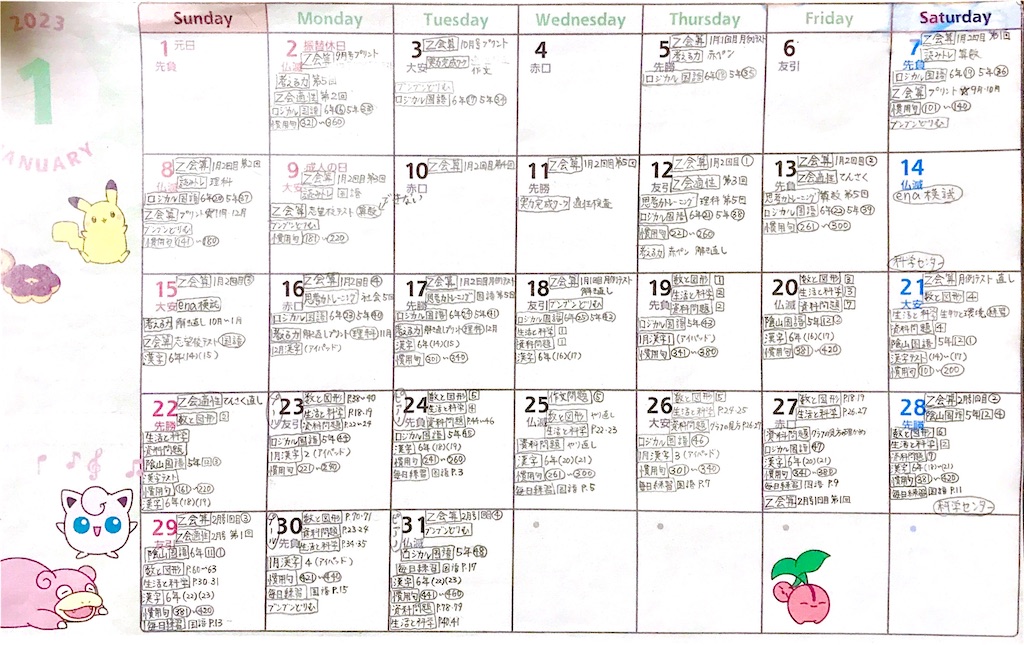 2023
1
JANUARY
Sunday Monday Tuesday Wednesday Thursday Friday Saturday
1 元日
先負
2 振替休日
仏滅 Z会算 9月号プリント
考える力 第5回
Z会適性 第2回
ロジカル国語 6年⑯ 5年㉝
慣用句 321〜360
3 Z会算 10月号プリント
大安 実力完成ワーク 作文
ブンブンどりむ
ロジカル国語 6年⑰ 5年㉞
4
赤口
5 Z会算 1月1回目月例テスト
先勝 考える力 赤ペン
ロジカル国語 6年⑱ 5年㉟
6
友引
7 Z会算 1月2回目 第1回
先負 読みトレ 算数
ロジカル国語 6年⑲ 5年㊱
Z会算 プリント☆9月・10月
慣用句 101〜140
ブンブンどりむ
8 Z会算 1月2回目 第2回
仏滅 読みトレ 理科
ロジカル国語 6年⑳ 5年㊲
Z会算 プリント☆11月・12月
ブンブンどりむ
慣用句 141〜180
9 成人の日
大安 Z会算 1月2回目 第3回
読みトレ 国語
Z会算 志望校テスト 算数
ブンブンどりむ
慣用句 181〜220
10 Z会算 1月2回目 第4回
赤口
できない
11 Z会算 1月2回目 第5回
先勝
実力完成ワーク 適性検査
12 Z会算 1月2回目①
友引 Z会適性 第3回
思考力トレーニング 理科 第5回
ロジカル国語 6年㉑ 5年㊳
慣用句 221〜260
考える力 赤ペン 解き直し
13 Z会算 1月2回目②
先負 Z会適性 てんさく
思考力トレーニング 算数 第5回
ロジカル国語 6年㉒ 5年㊴
慣用句 261〜300
14
仏滅
ena模試
科学センター
15 Z会算 1月2回目③
大安 ena模試
考える力 解き直し 10月〜1月
Z会算 志望校テスト 国語
漢字 6年(14)(15)
16 Z会算 1月2回目④
赤口 思考力トレーニング 社会5回
ロジカル国語 6年㉓ 5年㊵
考える力 解き直しプリント 理科 11月
12月漢字 (アイパッド)
17 Z会算 1月2回目月例テスト
先勝 思考力トレーニング 国語 第5回
ロジカル国語 6年㉔ 5年㊶
考える力 解き直しプリント 理科 12月
漢字 6年(14)(15)
慣用句 201〜240
18 Z会算 1月1回目月例テスト
解き直し
友引 ブンブンどりむ
ロジカル国語 6年㉕ 5年㊷
生活と科学 1
資料問題 1
漢字 6年(16)(17)
19 数と図形 1
先負 生活と科学 2
資料問題 2
ロジカル国語 5年㊸
1月漢字 1 (アイパッド)
慣用句 341〜380
20 数と図形 2
仏滅 生活と科学 3
資料問題 7
陰山国語 5年⑫②
漢字 6年(16)(17)
慣用句 381〜420
21 Z会算 月例テスト 直し
大安 数と図形 4
生活と科学 生物と環境 練習
資料問題 4
陰山国語 5年⑫①
漢字テスト (14)〜(17)
慣用句 101〜200
22 Z会適性 てんさく直し
先勝 数と図形 2
生活と科学
資料問題
陰山国語 5年⑫③
漢字テスト
慣用句 161〜220
漢字 6年(18)(19)
23 数と図形 P.38〜40
友引 生活と科学 P.18・19
資料問題 P.22〜24
ロジカル国語 5年㊹
1月漢字 2 (アイパッド)
慣用句 221〜280
24 数と図形 5
先負 生活と科学 4
資料問題 P.44〜46
ロジカル国語 5年㊺
漢字 6年(18)(19)
慣用句 241〜260
ロジカル国語 P.3
25 作文問題 5
仏滅 数と図形 やり直し
生活と科学 P.22・23
資料問題 やり直し
漢字 6年(20)(21)
慣用句 261〜300
毎日練習 国語 P.5
26 数と図形 5
大安 生活と科学 P.24・25
資料問題 グラフの見方 P.26・27
ロジカル国語 46
1月漢字 3 (アイパッド)
慣用句 301〜340
毎日練習 国語 P.7
27 数と図形 P.18・19
赤口 生活と科学 P.26・27
資料問題 グラフの見方
ロジカル国語 47
漢字 6年(20)(21)
慣用句 341〜380
毎日練習 国語 P.9
Z会算 2月号1回目 第1回
28 Z会算 2月号1回目②
先勝 陰山国語 5年⑫④
数と図形 6
生活と科学 2
資料問題 7
漢字 6年(18)〜(21)
慣用句 381〜420
毎日練習 国語 P.11
科学センター
29 Z会算 2月号1回目③
友引 Z会適性 2月号 第1回
陰山国語 6年⑪①
数と図形 P.60〜63
生活と科学 P.30・31
漢字 6年(22)(23)
慣用句 381〜420
毎日練習 国語 P.13
30 数と図形 P.70・71
先負 資料問題 P.23・24
生活と科学 P.34・35
1月漢字 4 (アイパッド)
慣用句 421〜440
毎日練習 国語 P.15
ブンブンどりむ
31 Z会算 2月号1回目④
仏滅 ブンブンどりむ
ロジカル国語 5年㊽
毎日練習 国語 P.17
漢字 6年(22)(23)
慣用句 441〜460
資料問題 P.78・79
生活と科学 P.40・41